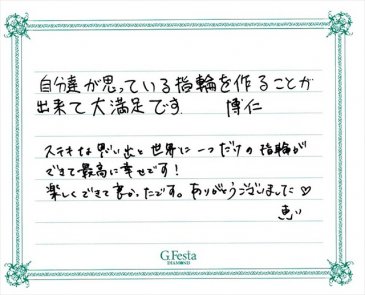 自分達が思っている指輪を作ることが
出来て大満足です 博仁
ステキな思い出と世界に一つだけの指輪が
できて最高に幸せです!
楽しくできて良かったです。ありがとうございました♡
恵い
G.Festa
DIAMOND